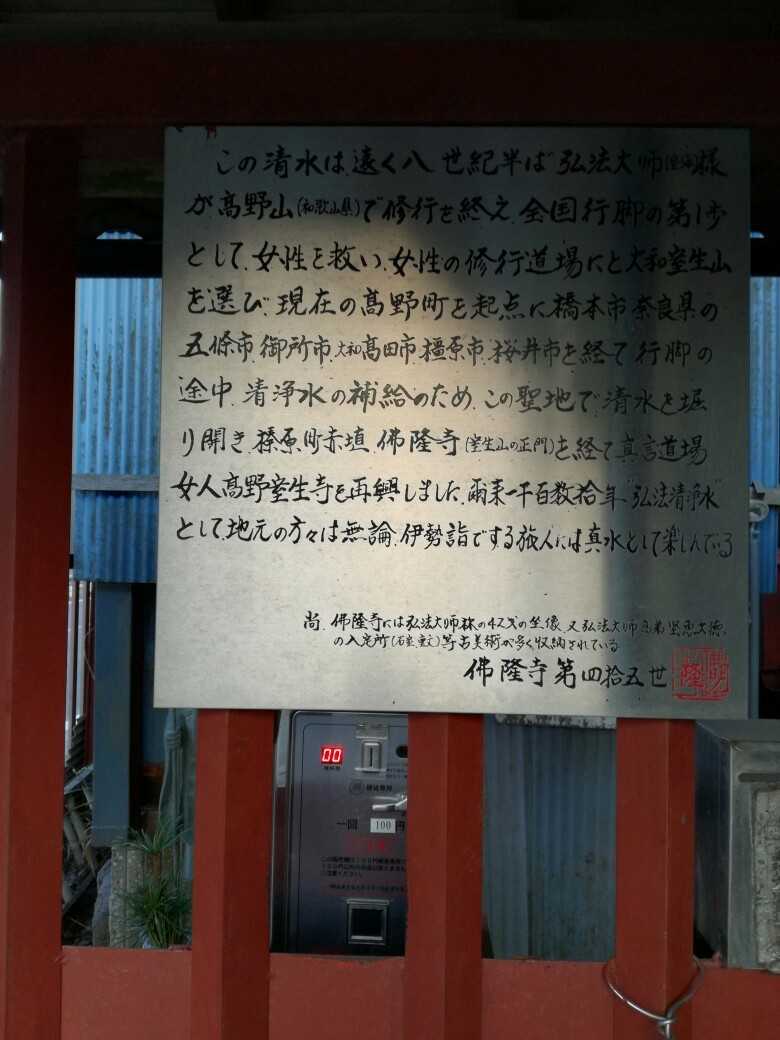 この清水は、遠く八世紀半ば弘法大師(空海)様
が、髙野山(和歌山県)で修行を終え、全国行脚の第1歩
として、女性を救い、女性の修行道場にと大和室生山
を選び、現在の髙野町を起点に橋本市、奈良県の
五條市、御所市、大和髙田市、橿原市、桜井市を経て行脚の
途中、清浄水の補給のため、この聖地で清水を堀
り開き、榛原町赤埴、佛隆寺(室生山の正門)を経て真言道場
女人髙野室生寺を再興しました、爾来一千百数拾年"弘法清浄水"
として、地元の方々は無論、伊勢詣でする旅人には真水として楽しんでいる
尚、佛隆寺には弘法大師様の42才の坐像、又弘法大師 堅恵大徳、
の入定所(石室、重文)等古美術が多く収納されている
佛隆寺第四拾五世
00
一回 100円